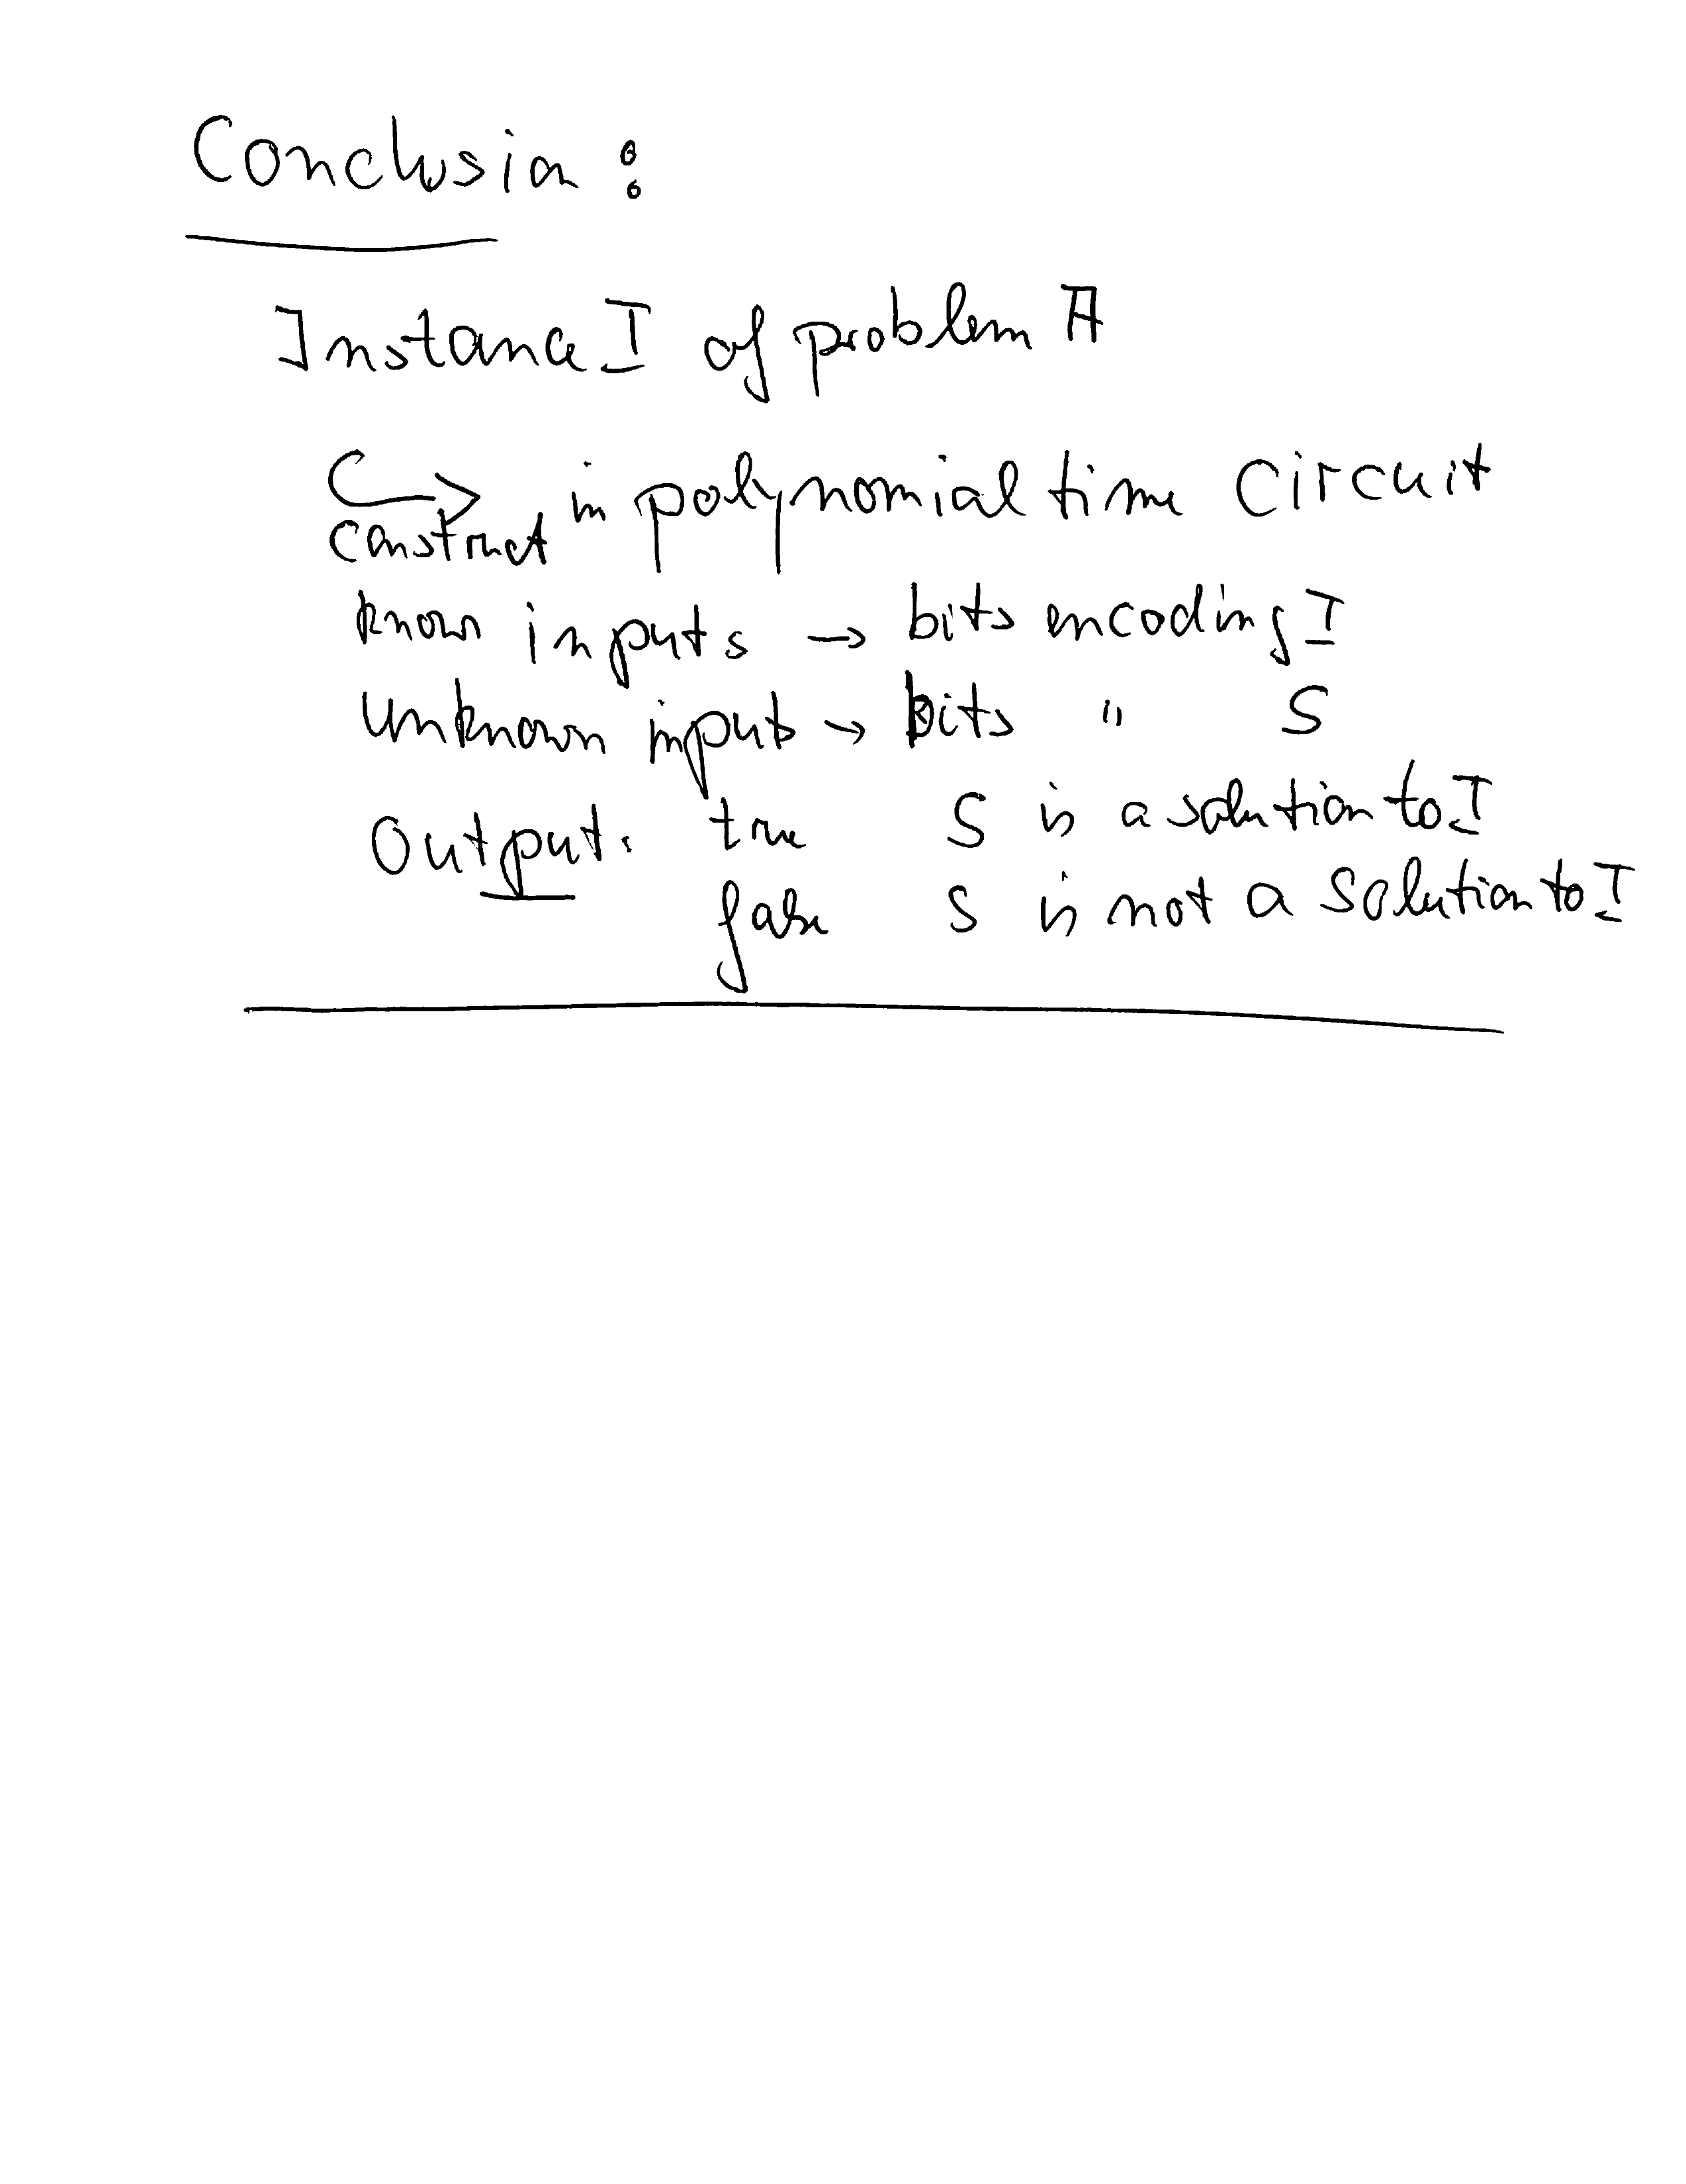 Conclusion:
Instance I of problem A
in polynomial time Circuit
construct
known inputs → bits encoding I
unknown inputs → bits " S
Output: true S is a solution to I
false S is not a solution to I